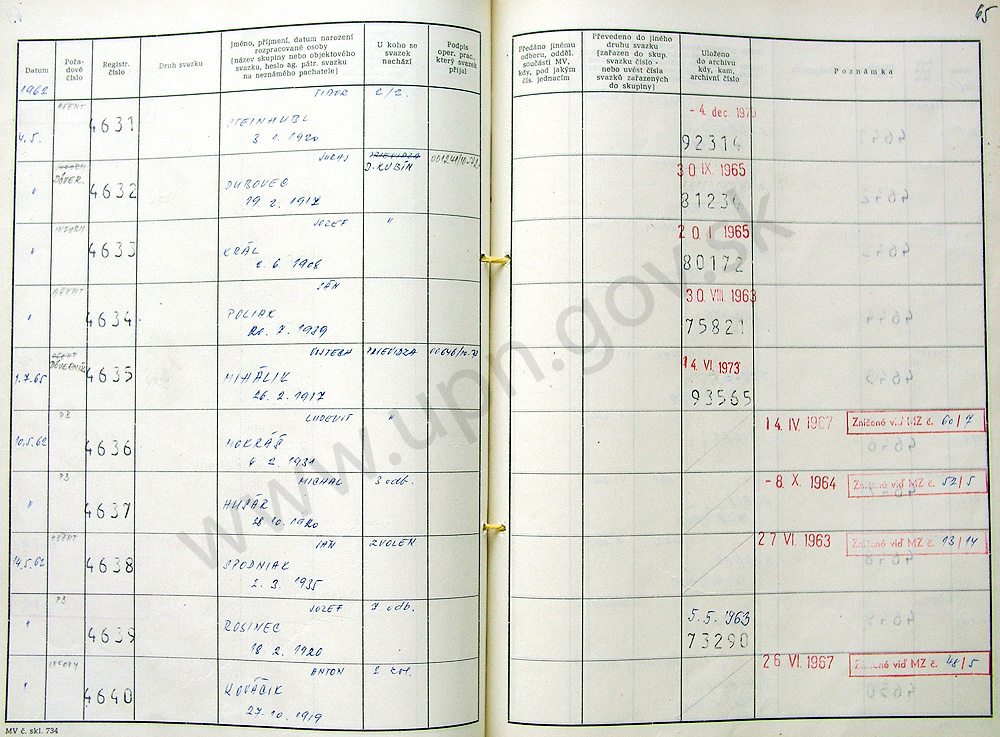 65
Datum
Pořa-
dové
číslo
Registr.
číslo
Druh svazku
Jméno, příjmení, datum narození
rozpracované osoby
(název skupiny nebo objektového
svazku, heslo ag. pátr. svazku
na neznámého pachatele)
U koho se
svazek
nachází
Podpis
oper. prac.,
který svazek
přijal
Předáno jinému
odboru, odděl.
součásti MV,
kdy, pod jakým
čís. jednacím
Převedeno do jiného
druhu svazku
(zařazen do skup.
svazku číslo -
nebo uvést čísla
svazků zařazených
do skupiny)
Uloženo
do archivu
kdy, kam,
archivní číslo
Poznámka
1962
AGENT
2/2.
4.5.
4631
3 1. 1920
- 4. dec. 1973
92314
DÔVER.
JURAJ
PRIEVIDZA
D. KUBÍN
"
4632
DUBOVEC
19 2. 1917
30 IX. 1965
81234
INFORM
JOZEF
"
"
4633
KRÁL
2. 6. 1908
20 I 1965
80172
AGENT
JÁN
"
4634
POLIAK
20. 7. 1939
30 VIII. 1963
75821
AGENT
DÔVERNÍK
PRIEVIDZA
1.7.65
4635
MIHÁLIK
26. 2. 1917
14. VI. 1973
93565
PS
ĽUDOVIT
"
10.5.62
4636
MOKRÁŠ
6 2. 1931
14. IV. 1967
Zničené viď MZ č. 60/7
PS
MICHAL
3 odb.
"
4637
HUSÁR
28. 10. 1920
- 8. X. 1964
Zničené viď MZ č. 52/5
AGENT
JÁN
ZVOLEN
14.5.62
4638
SPODNIAK
2. 3. 1935
27 VI. 1963
Zničené viď MZ č. 13/14
PS
JOZEF
7 odb.
"
4639
ROSINEC
18 2. 1920
5. 5. 1963
73290
INFORM
ANTON
"
4640
KOVÁČIK
27. 10. 1919
26 VI. 1967
Zničené viď MZ č. 48/5
MV č. skl. 734
www.upn.gov.sk